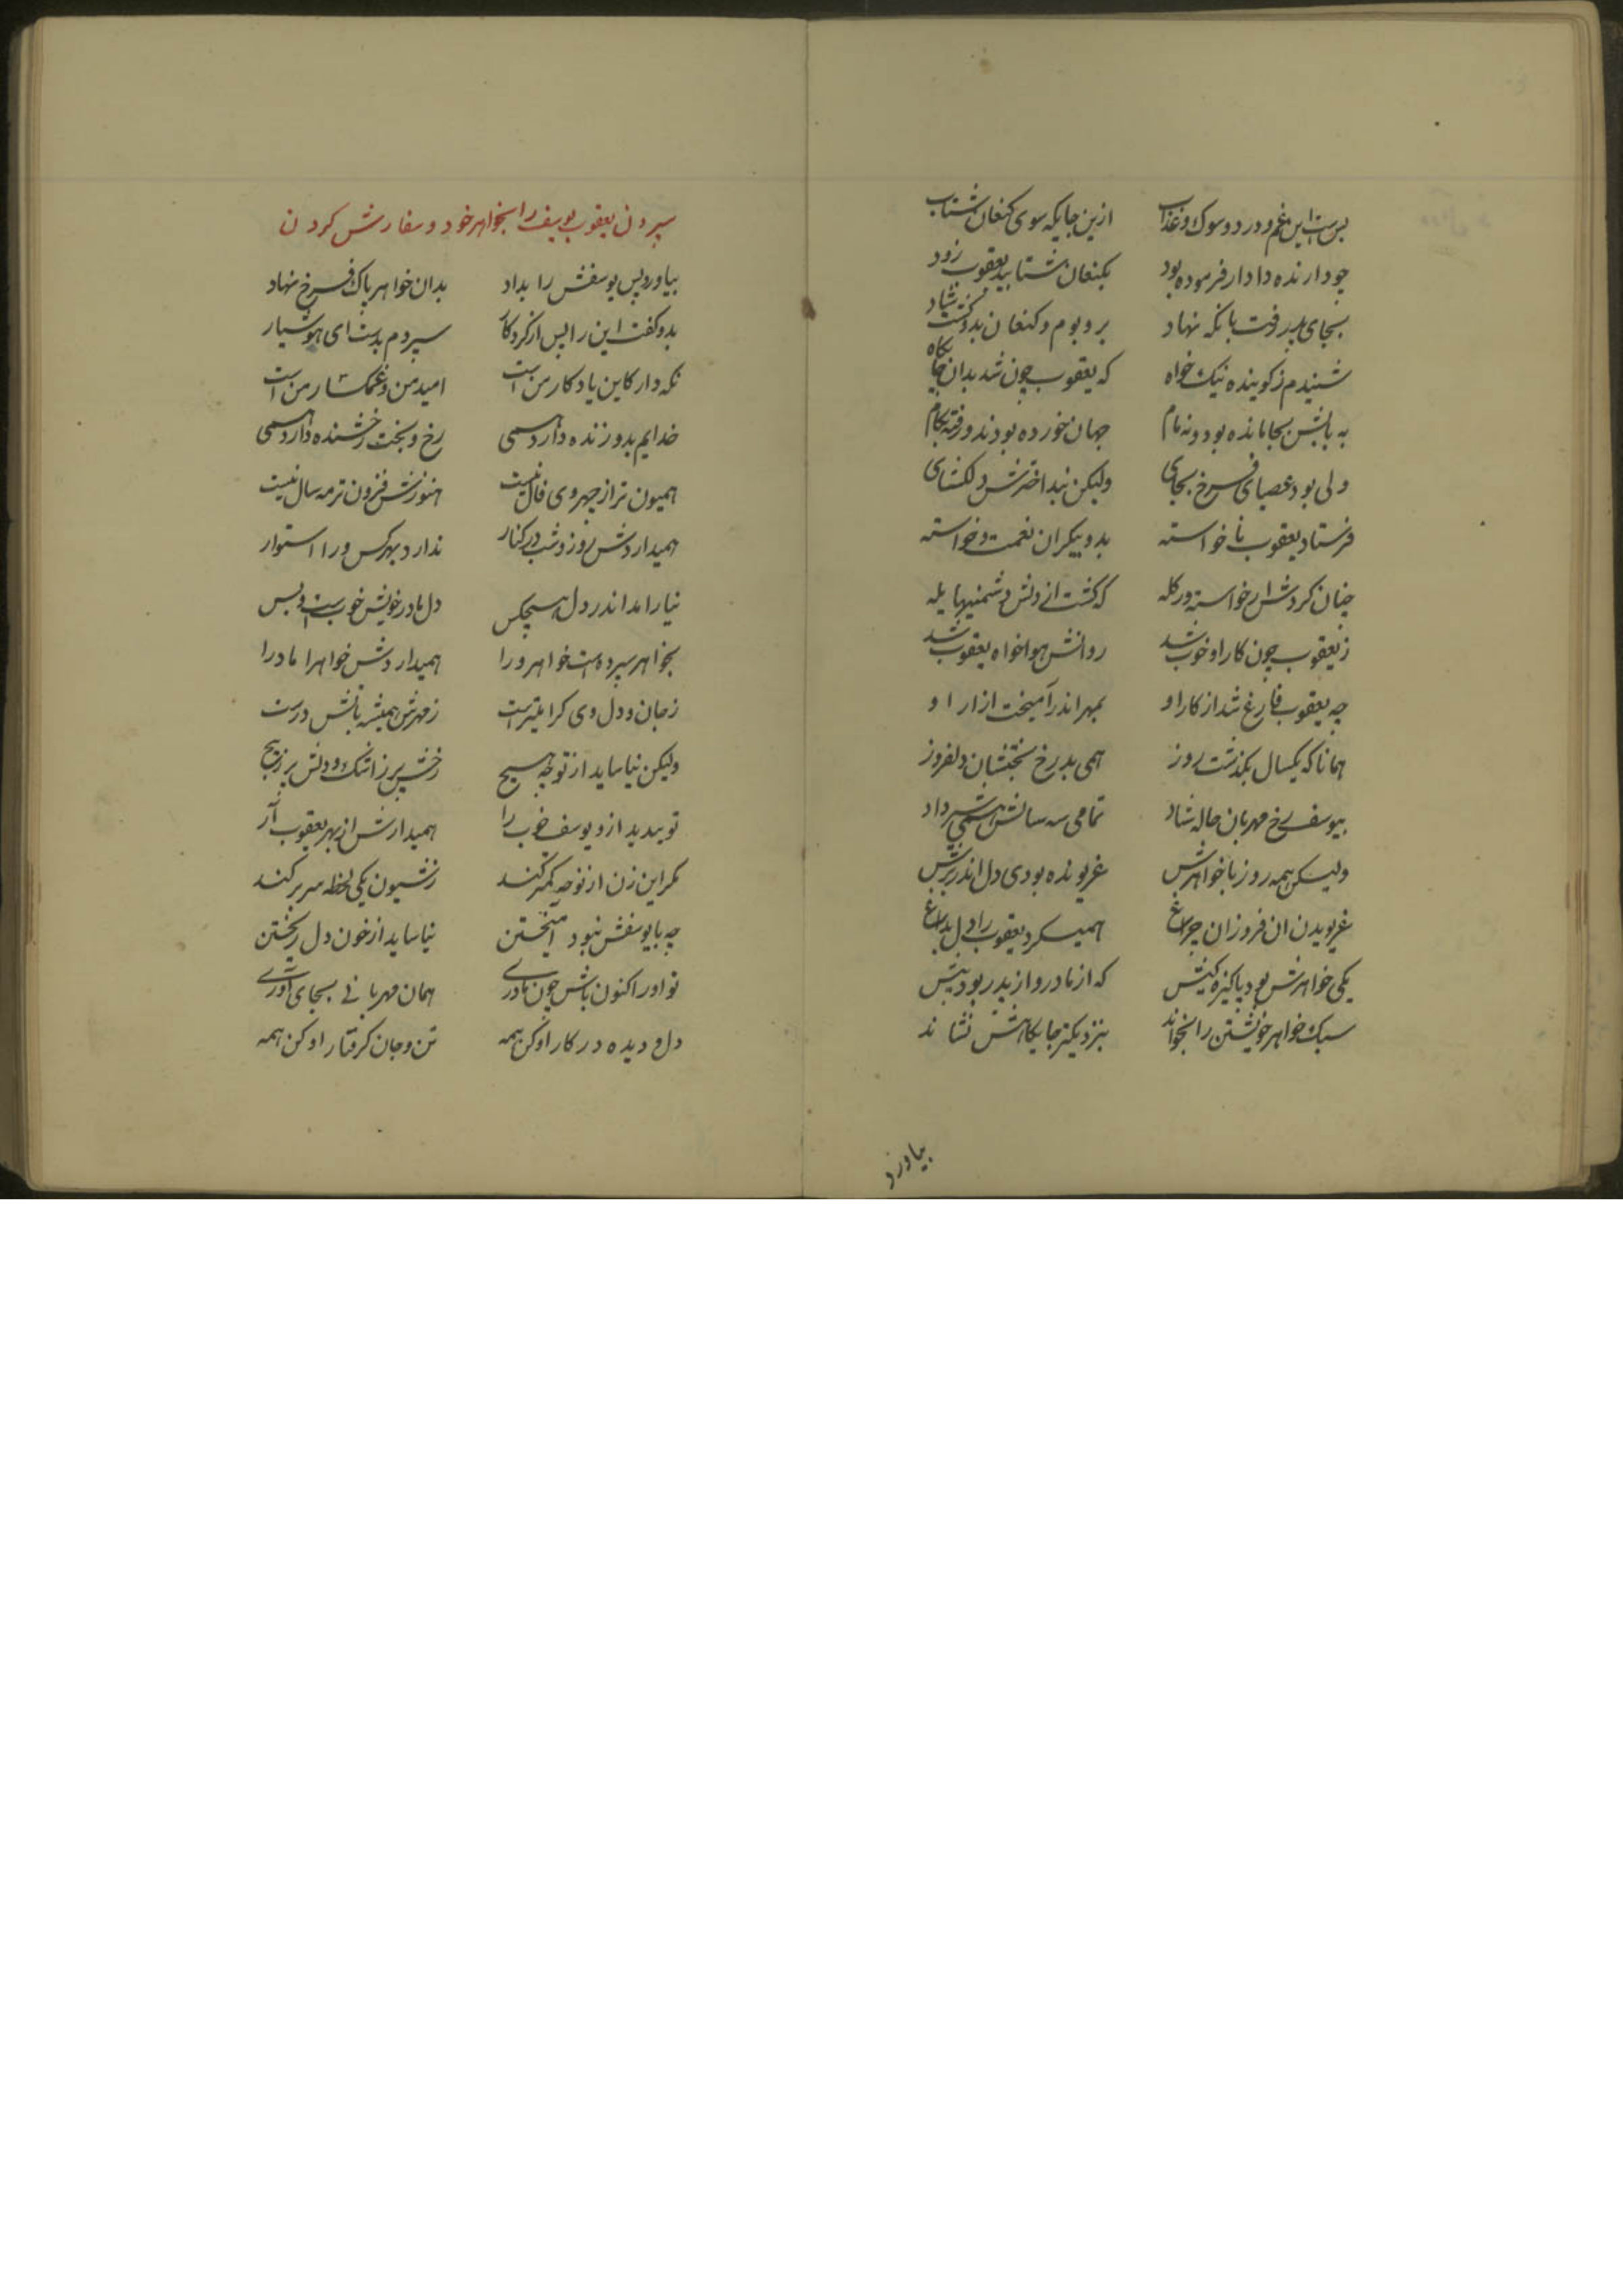 بس است این غم و درد و سوک و عذاب ازین جایکه سوی کنعان شتاب
چو دارنده دادار فرموده بود بکنعان شتابید یعقوب زود
بجای پدر رفت بانکه نهاد بر و بوم و کنعان بدو کشت شاد
شنیدم زکوینده نیک خواه که یعقوب چون شد بدان جایکاه
به بابش بجا مانده بود و نه مام جهان خورده بودند و رفته بکام
ولی بود عصیای فرخ بجای ولیکن نبد اخترش دلکشای
فرستاد یعقوب با خواسته بدو بیکران نعمت و خواسته
چنان کردش از خواسته ور کله که کشت از دلش دشمنیها یله
زیعقوب چون کار او خوب شد روانش هواخواه یعقوب شد
چه یعقوب فارغ شد از کار او بمهر اندر آمیخت ازار او
همانا که یکسال بکذشت روز همی بد رخ بختشان دلفروز
بیوسف رخ مهربان خاله شاد تمامی سه سالش همی شیر داد
ولیکن همه روز با خواهرش غریونده بودی دل اندر برش
غریویدن ان فروزان چراغ همیکرد یعقوب را دل بداغ
یکی خواهرش بود پاکیزه کیش که از مادر و از پدر بود پیش
سبک خواهر خویشتن را بخواند بنزدیکتر جایکاهش نشاند
بیاورد
سپردن یعقوب یوسف را بخواهر خود و سفارش کردن
بیاورد پس یوسفش را بداد بدان خواهر پاک فرخ نهاد
بدو کفت این را پس از کردکار سپردم بدست ای هوشیار
نکه دار کاین یادکار من است امید من و غمکسار من است
خدایم بدو زنده دارد همی رخ و بخت رخشنده دارد همی
همیون تر از چهر وی فال نیست هنوزش فزون تر مه سال نیست
همیدار دش روز و شب در کنار ندارد بهر کس ورا استوار
نیارامد اندر دل هیچکس دل مادر خویش خوب است و بس
بخواهر سپرده است خواهر ورا همیدار دش خواهرا مادرا
زجان و دل وی کرامیتر است زمهرش همیشه باتش درست
ولیکن نیاساید از نوحه هیچ رخش پر ز اشک و دلش پر زپیچ
تو بیدید ازو یوسف خوب را همیدارش از بهر یعقوب را
مکر این زن از نوحه کمتر کند زشیون یکی لحظه سر بر کند
چه با یوسفش نبود آمیختن نیاساید از خون دل ریختن
تو اورا کنون باش چون مادری همان مهربانی بجای آوری
دل و دیده در کار او کن همه تن و جان کرفتار او کن همه